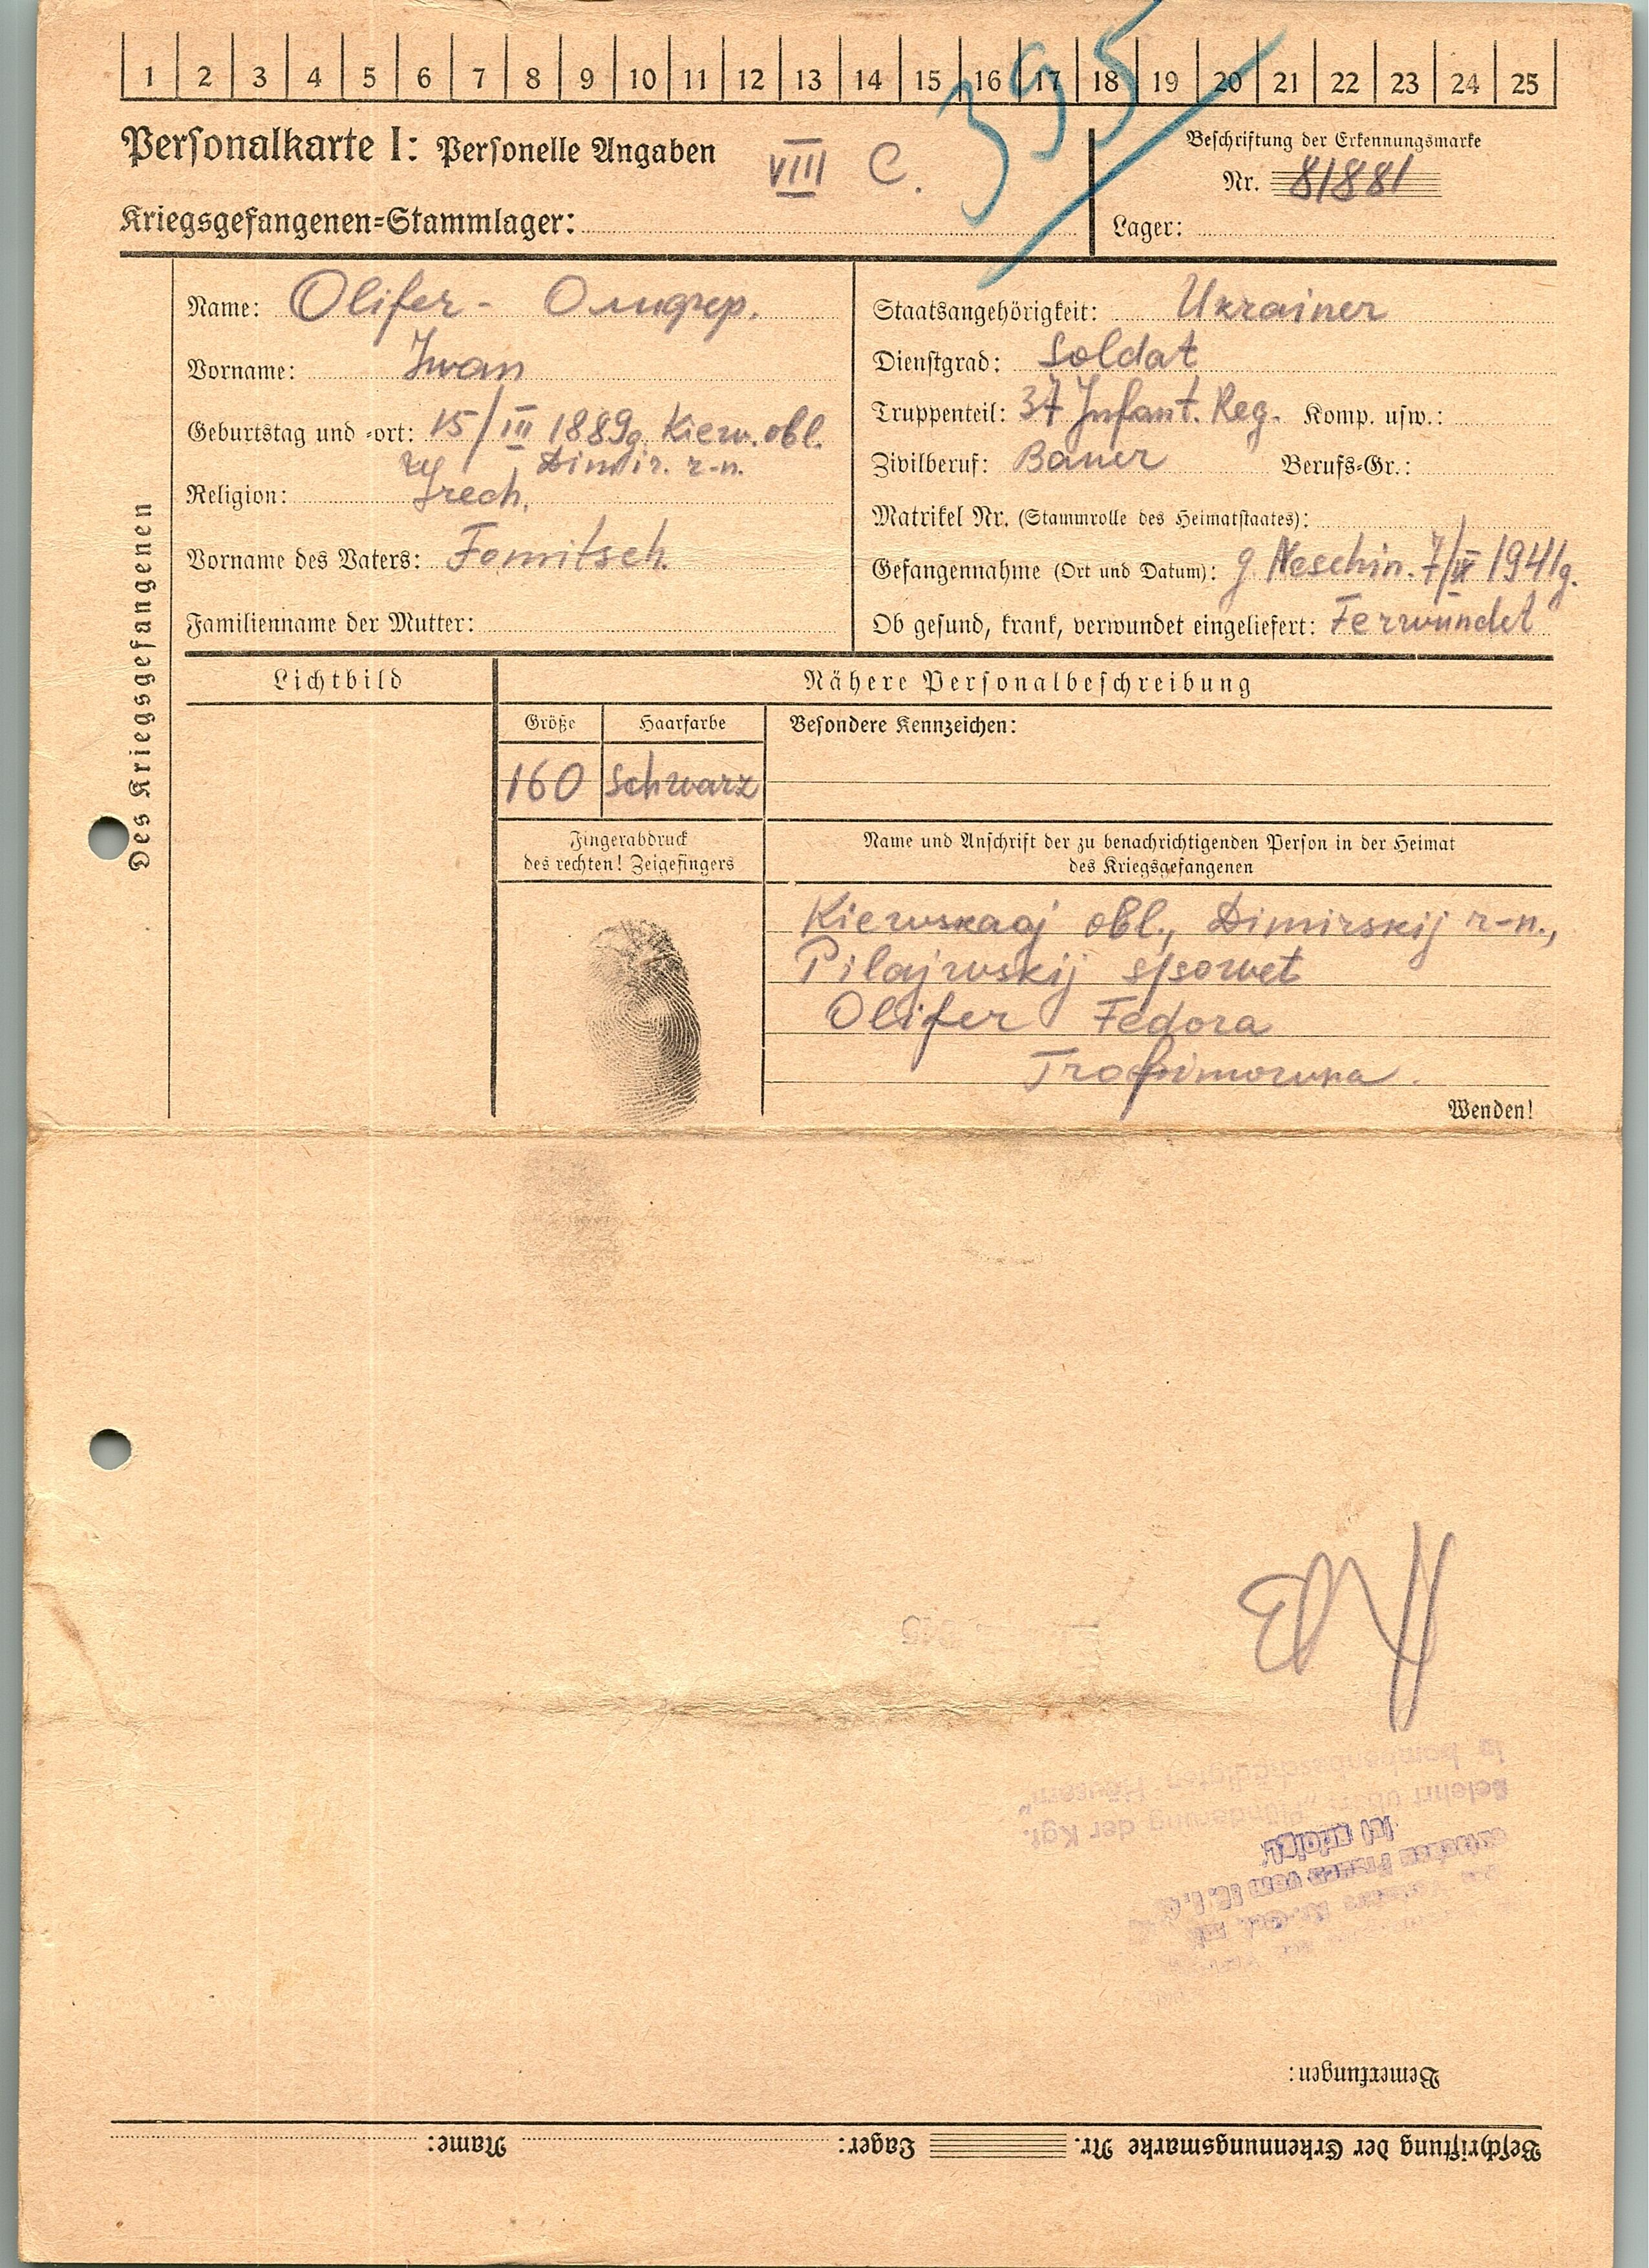 1 2 3 4 5 6 7 8 9 10 11 12 13 14 15 16 17 18 19 20 21 22 23 24 25
395
Personalkarte I: Personelle Angaben
VIII C.
Kriegsgefangenen-Stammlager:
Beschriftung der Erkennungsmarke
Nr. 81881
Lager:
Des Kriegsgefangenen
Name: Olifer - Олифер.
Vorname: Iwan
Geburtstag und -ort: 15/III 1889g. Kiew. obl.
Dimir. r-n.
Religion: Grech.
Vorname des Vaters: Fomitsch.
Familienname der Mutter:
Staatsangehörigkeit: Ukrainer
Dienstgrad: Soldat
Truppenteil: 37 Infant. Reg. Komp. usw.:
Zivilberuf: Bauer Berufs-Gr.:
Matrikel Nr. (Stammrolle des Heimatstaates):
Gefangennahme (Ort und Datum): g. Neschin. 7/IX 1941g.
Ob gesund, krank, verwundet eingeliefert: Ferwundet
Lichtbild
Nähere Personalbeschreibung
Größe Haarfarbe
160 schwarz
Besondere Kennzeichen:
Fingerabdruck
des rechten! Zeigefingers
Name und Anschrift der zu benachrichtigenden Person in der Heimat
des Kriegsgefangenen
Kiewskaaj obl., Dimirskij r-n.,
Pilajwskij s/sowet
Olifer Fedora
Trofimowna.
Wenden!
Belehrt über „Plünderung der Kgf.
in bombenbeschädigten Häusern“
deutschen Frauen vom
ist erfolgt.
Bemerkungen:
Beschriftung der Erkennungsmarke Nr. Lager: Name: